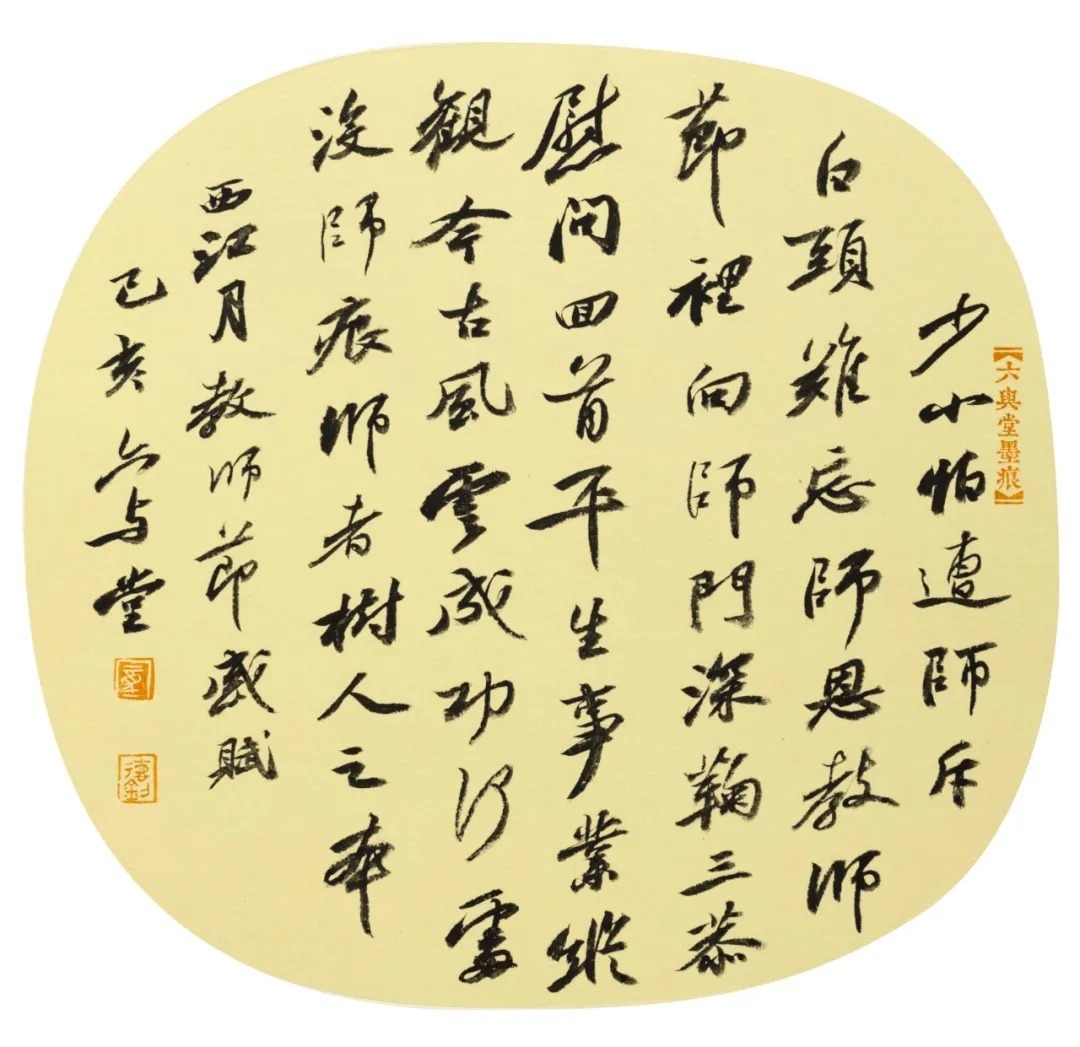 【六與堂墨痕】
少小怕遭師斥
白頭難忘師恩教师
節裡向師門深鞠三恭
慰问回首平生事業縱
觀今古風雲成功何處
没師痕师者樹人之本
西江月教师節感賦
己亥六与堂